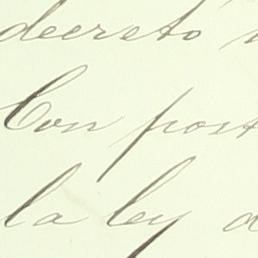 decretó
Con post
la ley d